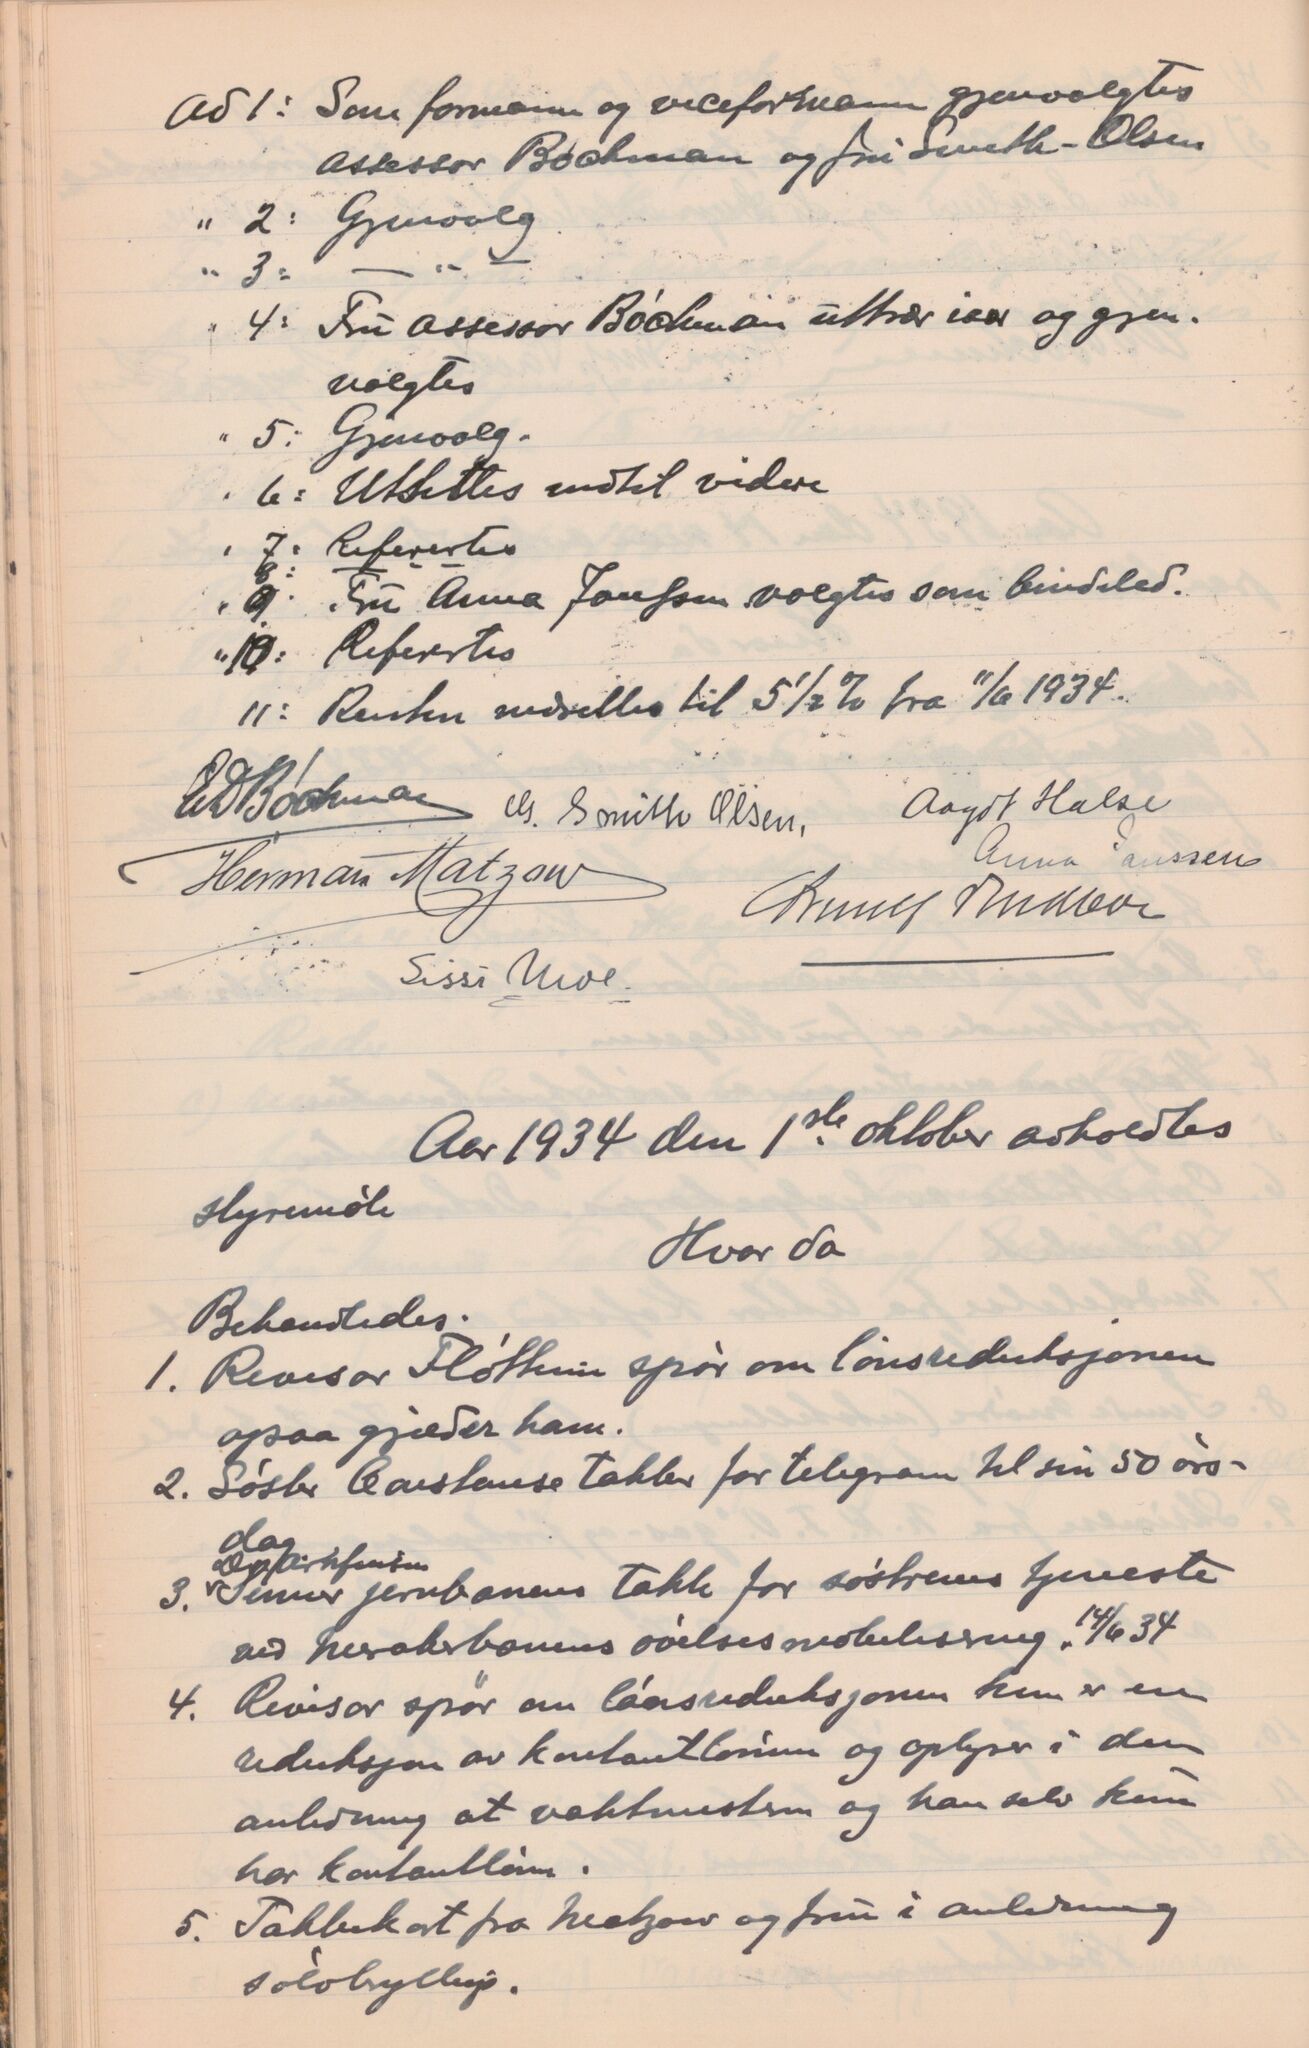 Ad 1: Som formann og viceformann gjenvalgtes
assessor Bóckman og fru Smith-Olsen
" 2: Gjenvalg
" 3: — " —
" 4: Frū assessor Bóckman ūttrær iaar og gjen-
valgtes
" 5: Gjenvalg.
" 6: Utsettes indtil videre
" 7: Refereertes
8:
" 9: Frū Anna Janssen valgtes som bindeled.
" 10: Refereertes
11: Renten nedsettes til 5 1/2 % fra 11/6 1934.
Ed Bóckman
G. Smith Olsen,
Aagót Halse
Herman Matzow
Anna Janssen
Sissi Moe.
Aar 1934 den 1ste oktober avholdtes
styremóte
Hvor da
Behandledes.
1. Revisor Flóttum spór om lónsreduksjonen
ogsaa gjælder ham.
2. Sóster Constanse takker for telegram til sin 50 års-
dag
3. Jernbanens takk for sóstrenes tjeneste
ved Merakerbanens óvelsesmobilisering. 14/6 34
4. Revisor spór om lónsreduksjonen kun er en
reduksjon av kontantlónnen og oplyser i den
anledning at vaktmesteren og han selv kūn
har kontantlónn.
5. Takkekort fra Matzow og frū i anledning
sólvbryllup.